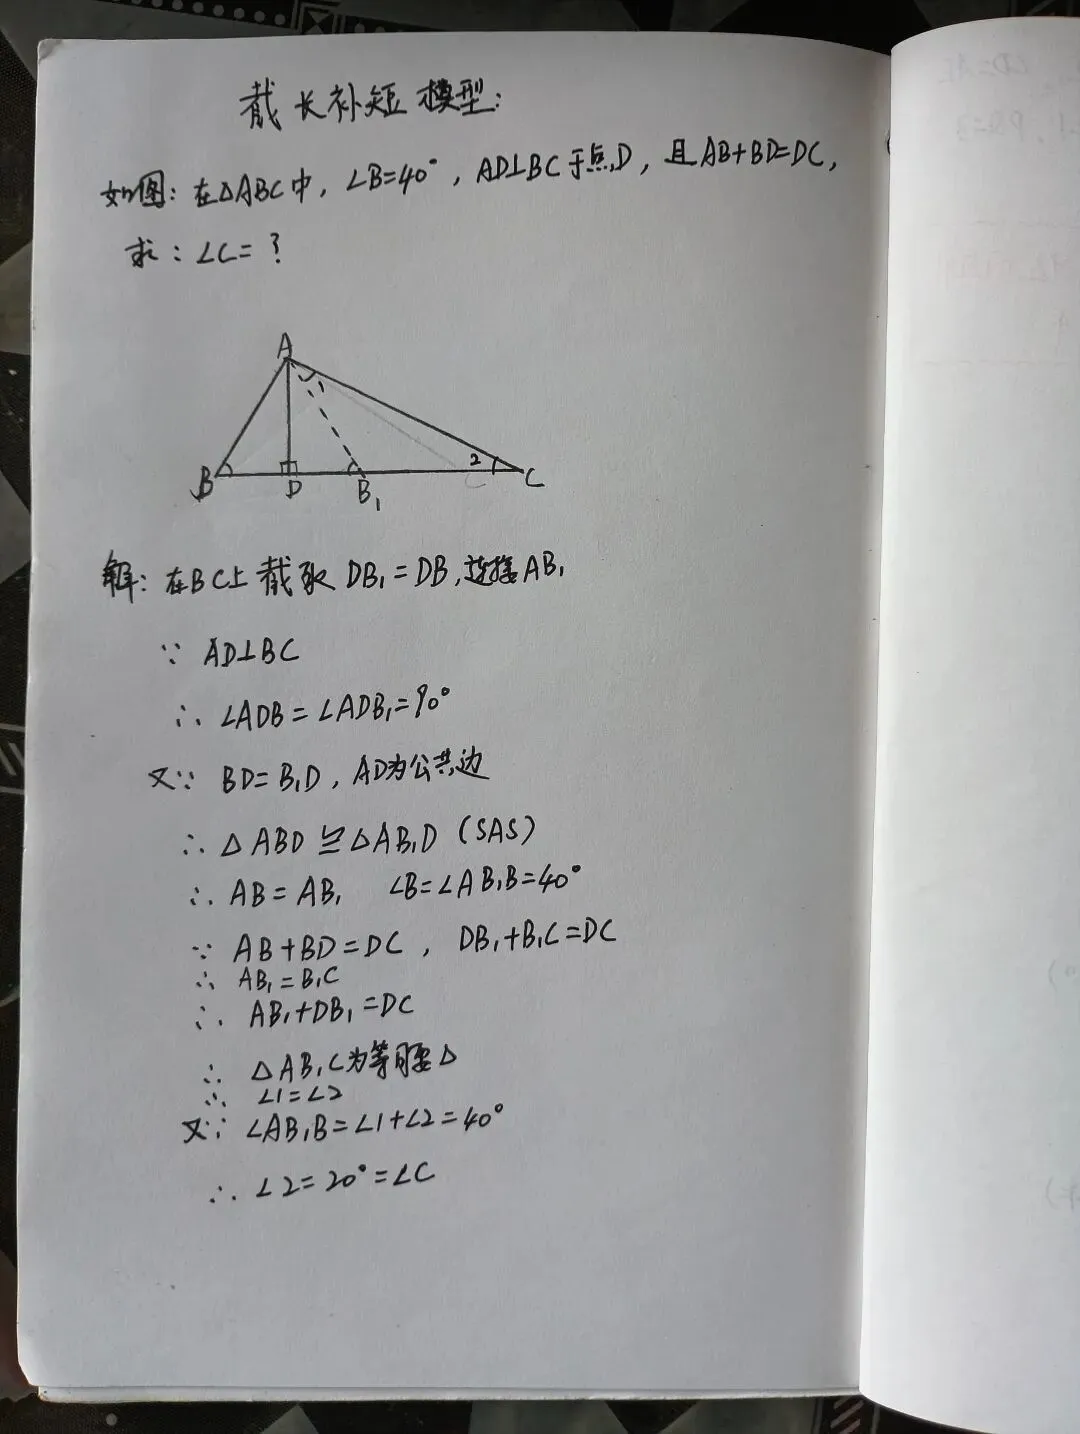 截长补短模型:
如图:在△ABC中,∠B=40°,AD⊥BC于点D,且AB+BD=DC,
求:∠C=?
A
1
2
B
D
B₁
C
C
解:在BC上截取DB₁=DB,连接AB₁
∵ AD⊥BC
∴ ∠ADB=∠ADB₁=90°
又∵ BD=B₁D,AD为公共边
∴ △ABD≌△AB₁D(SAS)
∴ AB=AB₁ ∠B=∠AB₁B=40°
∵ AB+BD=DC,DB₁+B₁C=DC
∴ AB₁=B₁C
∴ AB₁+DB₁=DC
∴ △AB₁C为等腰△
∴ ∠1=∠2
又∵ ∠AB₁B=∠1+∠2=40°
∴ ∠2=20°=∠C